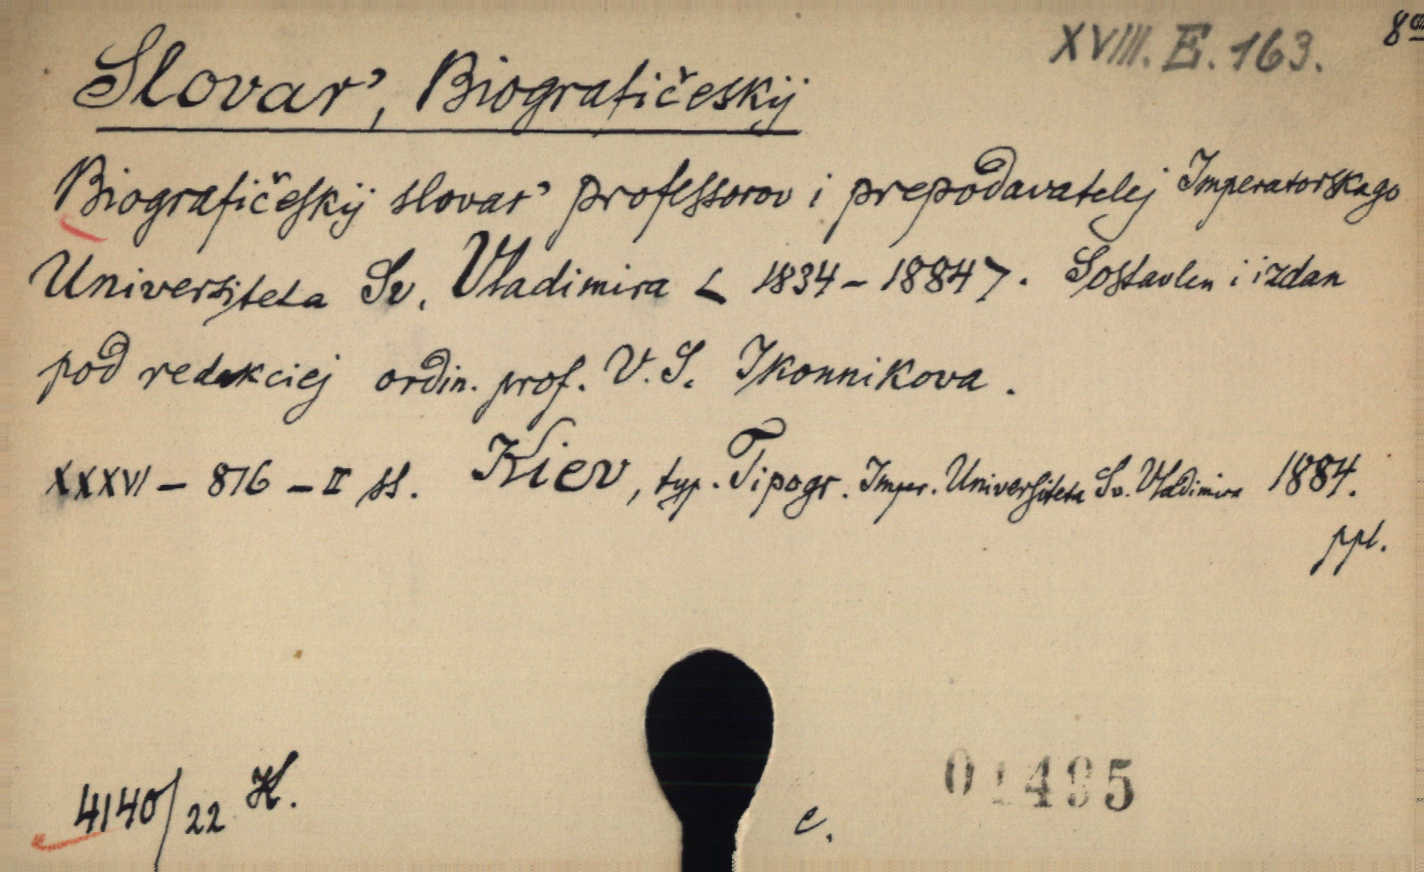 XVIII. E. 163.
Slovar', Biografičeskij
Biografičeskij slovar' professorov i prepodavatelej Imperatorskago
Universiteta Sv. Vladimira < 1834 - 1884 >. Sostavlen i izdan
pod redakciej ordin. prof. V. S. Ikonnikova.
XXXVI - 816 - II ss. Kiev, typ. Tipogr. Imper. Universiteta Sv. Vladimira 1884.
ppl.
4140/22 H.
c.
01495